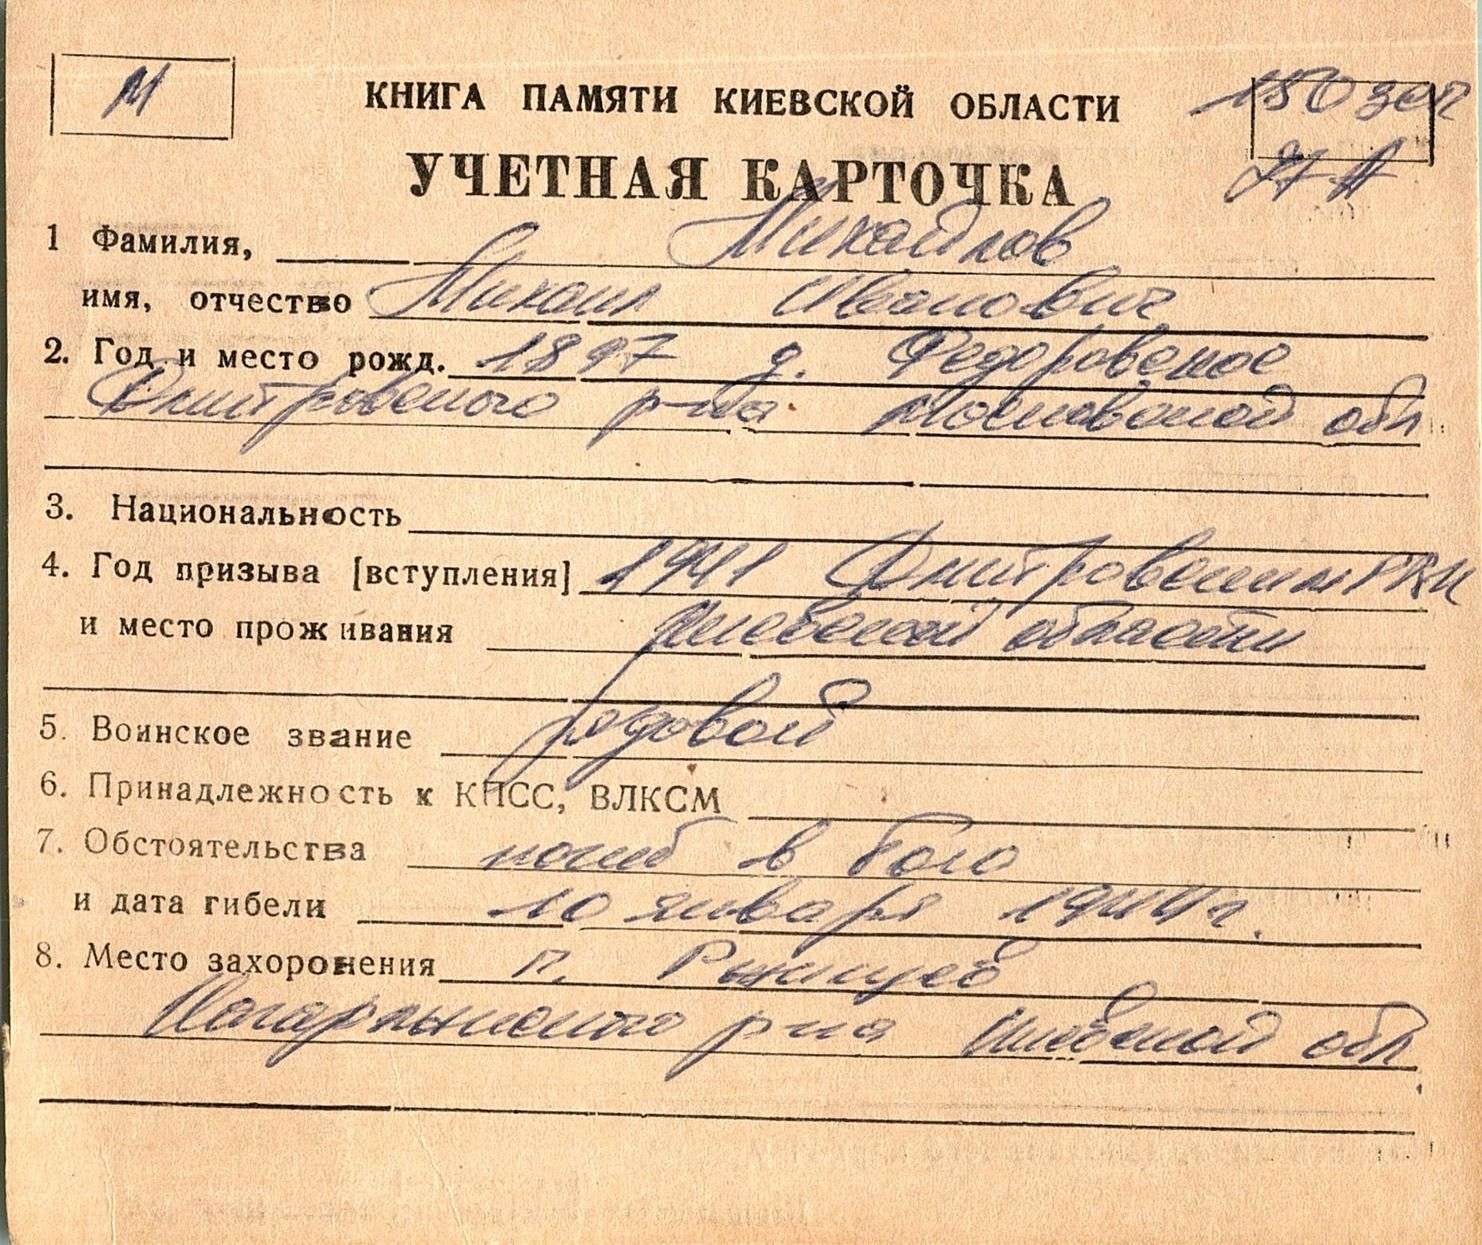 М
КНИГА ПАМЯТИ КИЕВСКОЙ ОБЛАСТИ
150 зап
УЧЕТНАЯ КАРТОЧКА
1 Фамилия, Михайлов
имя, отчество Михаил Иванович
2. Год и место рожд. 1897 д. Федоровское
Дмитровского р-на Московской обл
3. Национальность
4. Год призыва [вступления] 1941 Дмитровским РВК
и место проживания Киевской области
5. Воинское звание рядовой
6. Принадлежность к КПСС, ВЛКСМ
7. Обстоятельства погиб в бою
и дата гибели 10 января 1944г.
8. Место захоронения п. Ржищев
Кагарлыкского р-на Киевской обл.